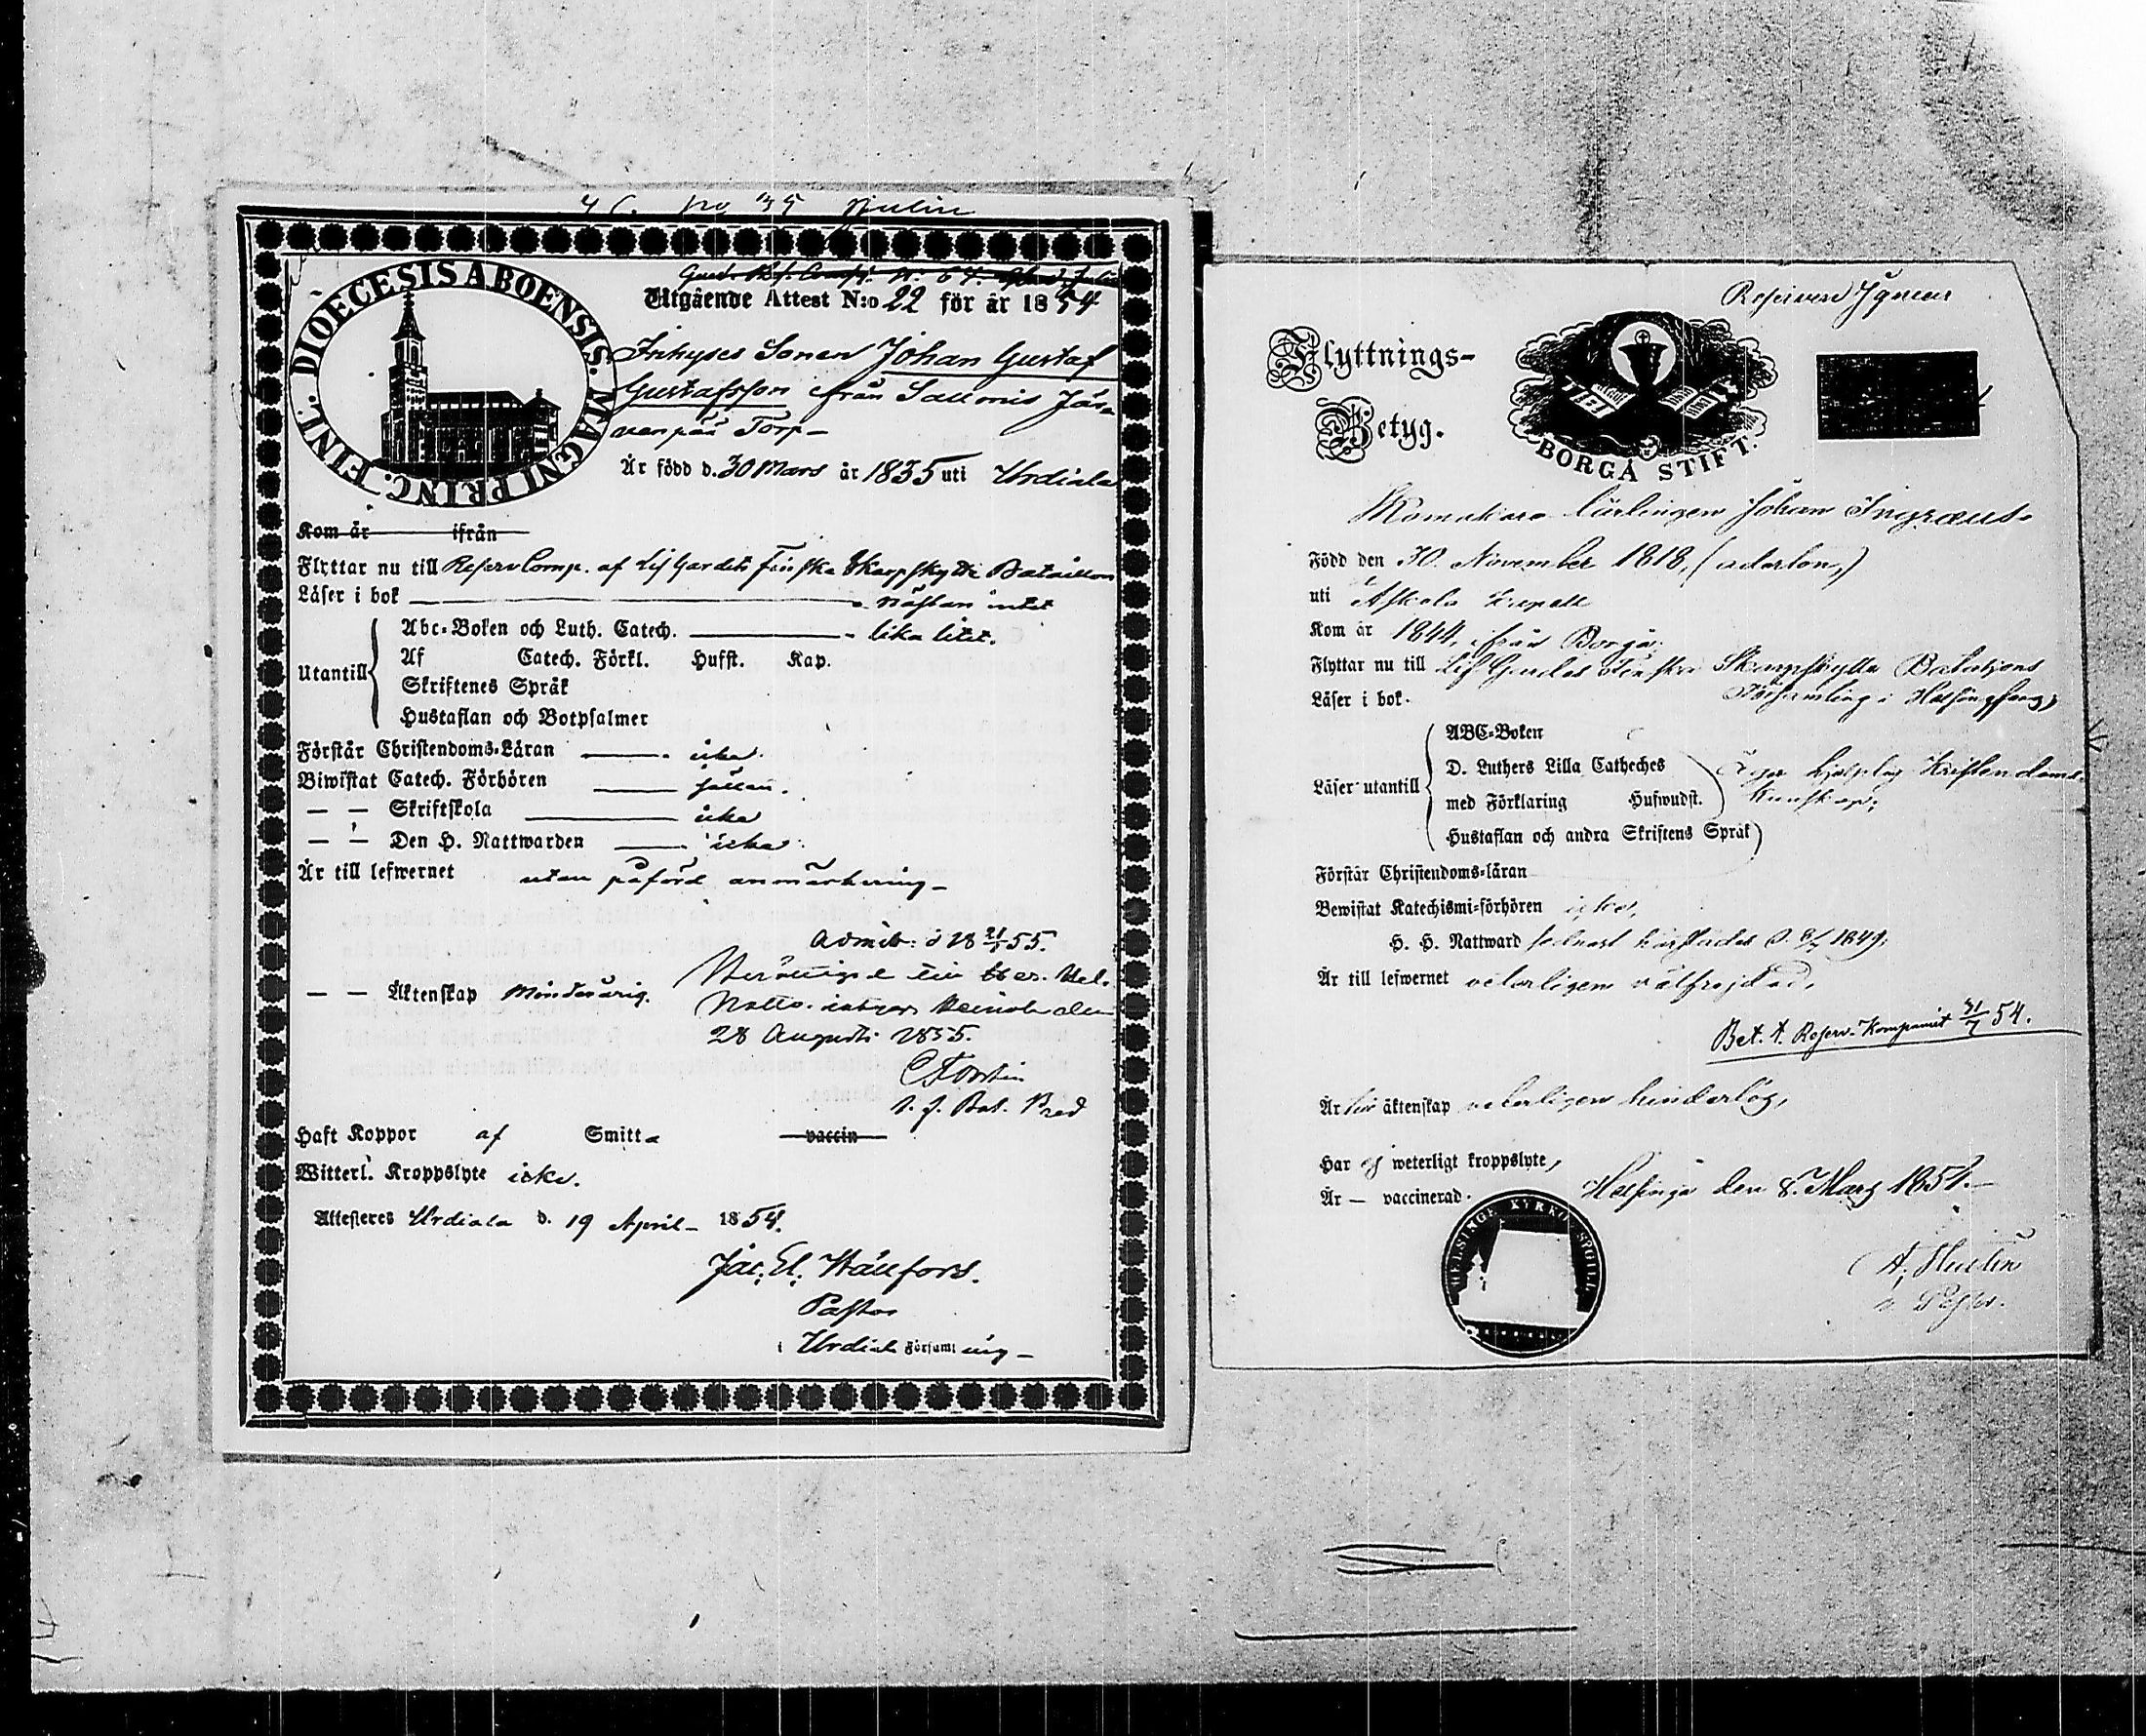 DIOECESIS ABOENSIS. MAGNI PRINC. FINL.
Utgående Attest N:o 22 för år 1854
Inhyses Sonen Johan Gustaf
Gustafsson från Jär-
venpää Torp-
Är född d. 30 Mars år 1835 uti Urdiala
Kom år ifrån
Flyttar nu till Reserv Comp. af Lif Gardets Finska Skarpskytte Bataillon
Läser i bok nästan intet
Utantill
Abc-Boken och Luth. Catech. lika litet.
Af Catech. Förkl. Hufst. Kap.
Skriftenes Språk
Hustaflan och Botpsalmer
Förstår Christendoms-Läran icke.
Biwistat Catech. Förhören sällan.
— — Skriftskola icke
— — Den H. Nattwarden icke.
Är till lefwernet utan påförd anmärkning-
Admitt: d 28 55.
— — Äktenskap Minderårig.
28 Augusti 1855.
Haft Koppor af Smitta vaccin
Witterl. Kroppslyte icke.
Attesteres Urdiala d. 19 April- 1854.
Jac. El. Wallfors.
Pastor
i Urdiala Församling-
Flyttnings-
Betyg.
BORGÅ STIFT.
Skomakare lärlingen Johan
Född den 30 November 1818, (aderton,)
uti Askola kapell
Kom år 1844, ifrån Borgå;
Flyttar nu till Lif Gardets Finska Skarpskytte Bataljons
Församling i Helsingfors,
Läser i bok.
Läser utantill
ABC-Boken
D. Luthers Lilla Catheches
med Förklaring Hufwudst.
Hustaflan och andra Skriftens Språk
Äger hjelplig Kristendoms
kunskap;
Förstår Christendoms-läran
Bewistat Katechismi-förhören icke,
H. H. Nattward sednast 1849;
Är till lefwernet veterligen välfrejdad,
Bet. t. Reserv-Kompaniet 31/7 54.
Är för äktenskap veterligen hinderlös,
Har ej weterligt kroppslyte,
Är — vaccinerad.
Helsinge den 8. Mars 1854.
HELSINGE KYRKO